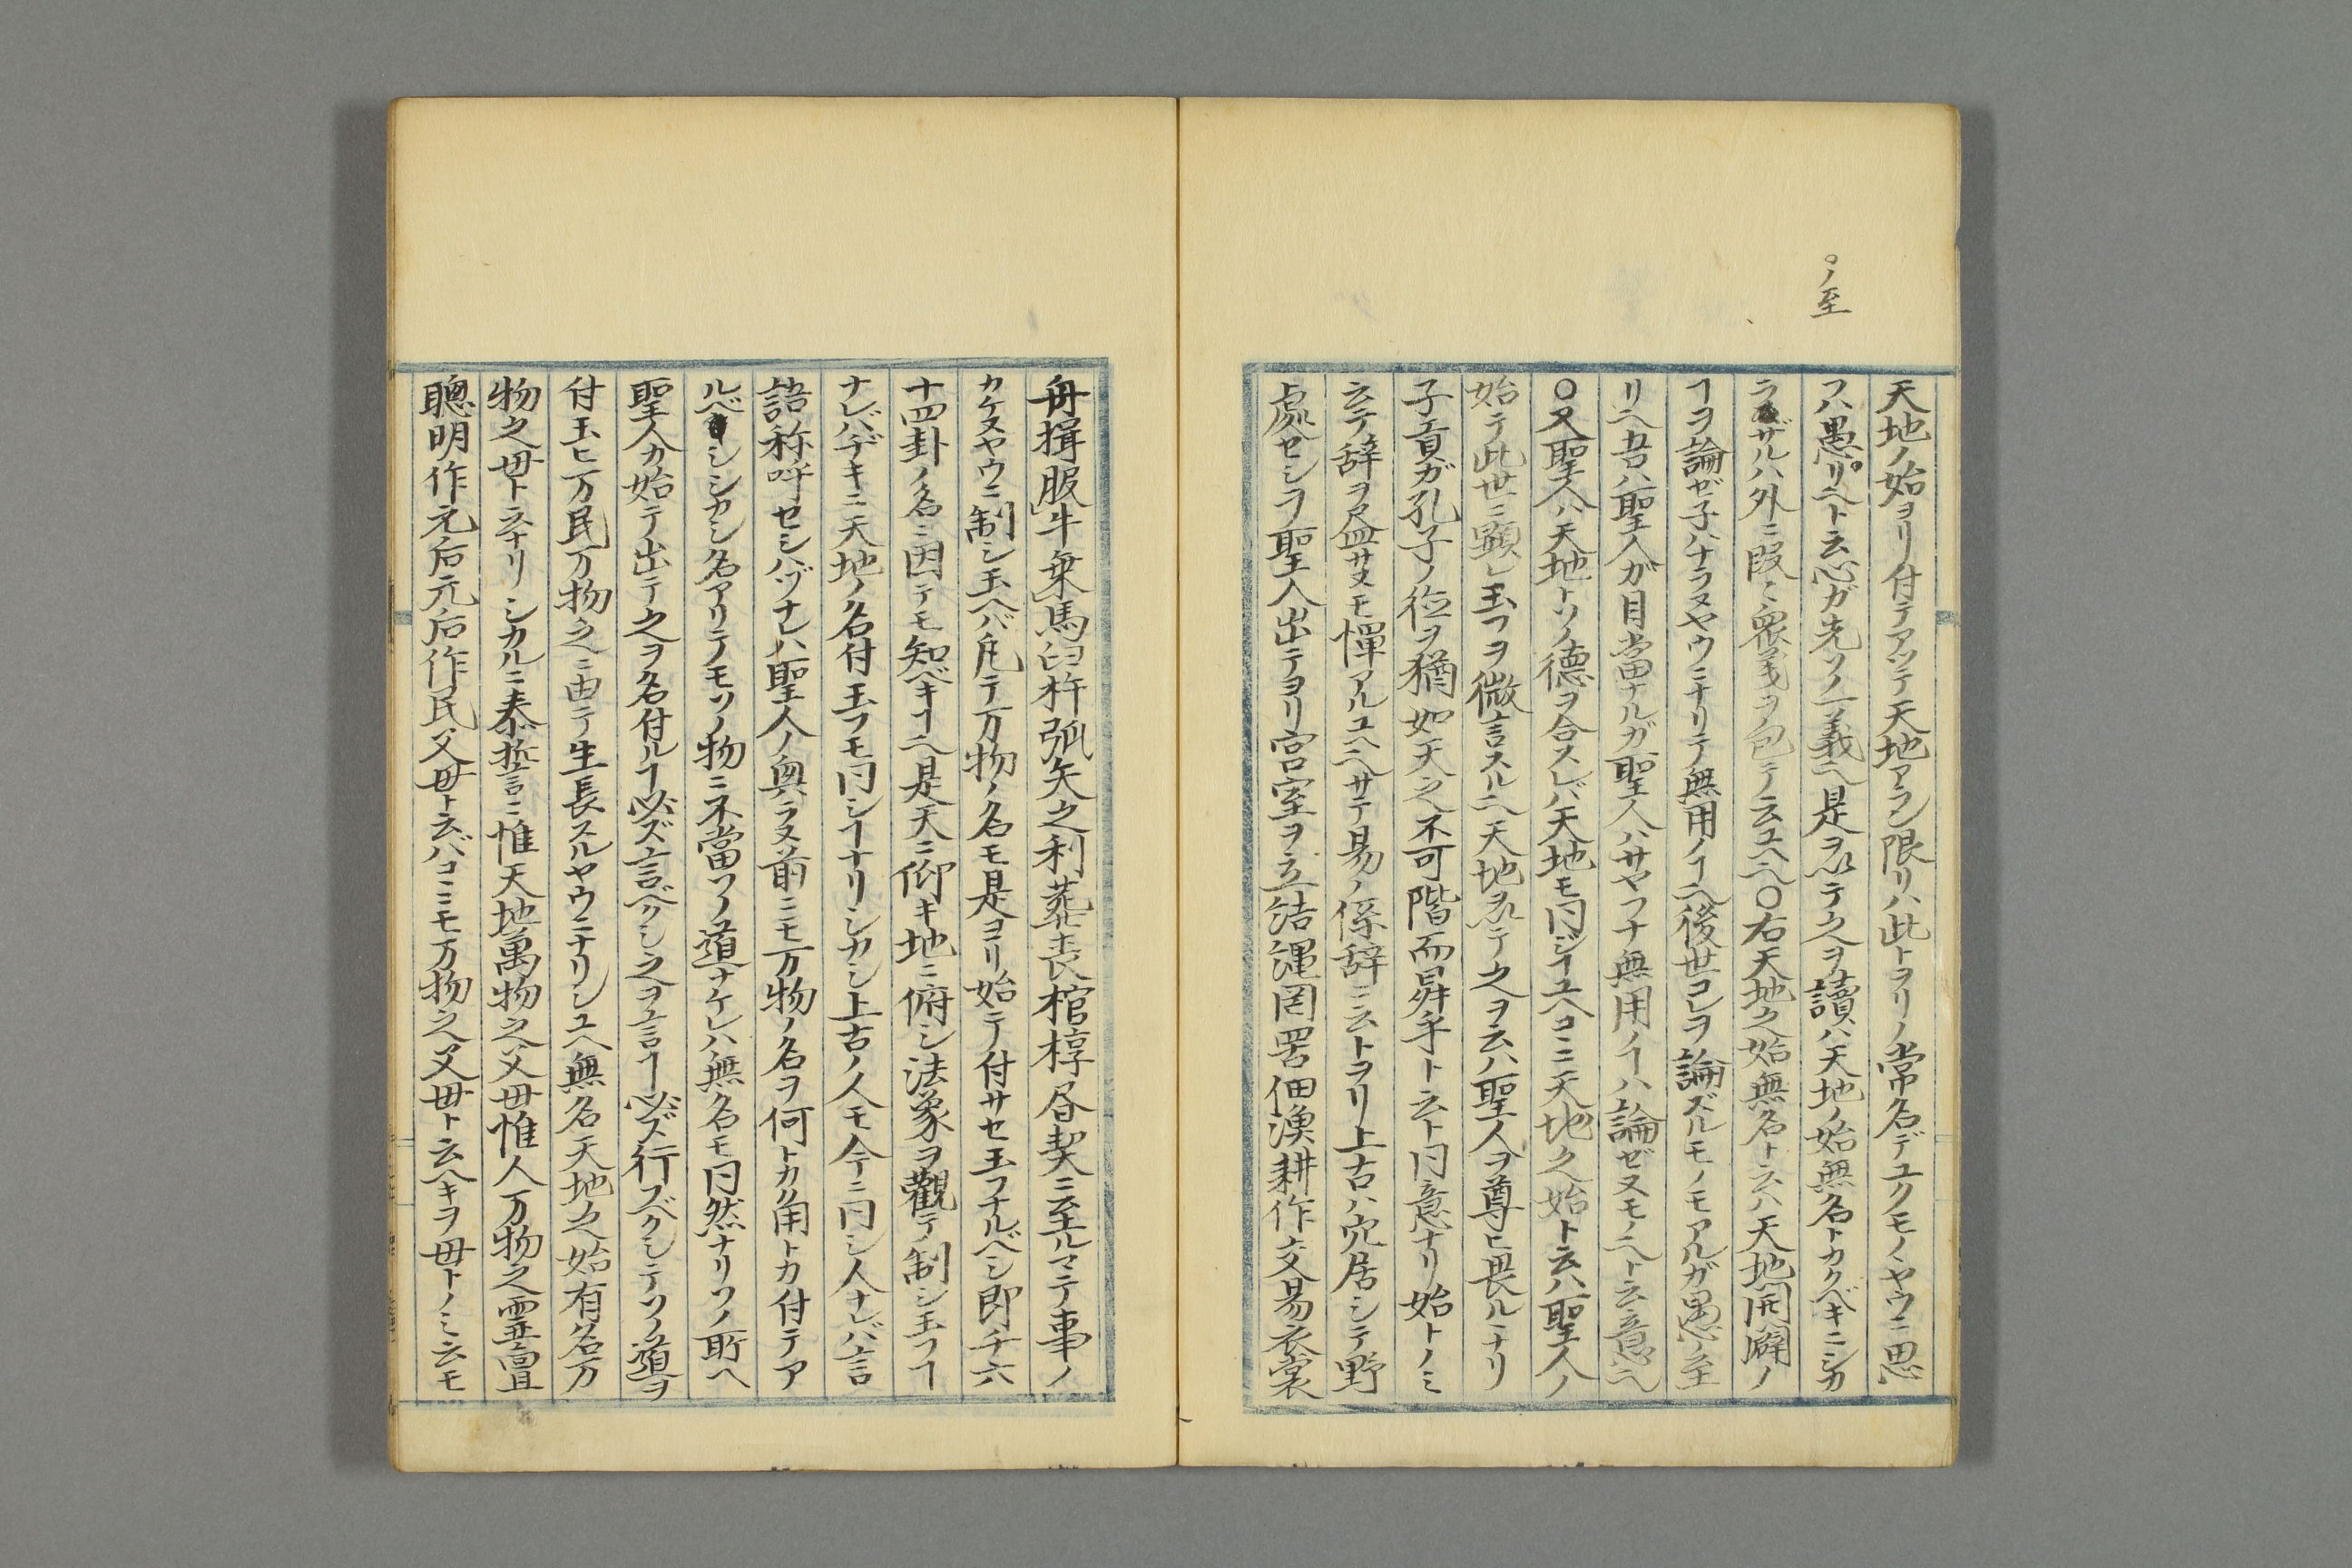 ノ至
天地ノ始ヨリ付テアツテ天地アラン限リハ此トヲリノ常名デユクモノヽヤウニ思
フハ愚リ也ト云心ガ先ソノ一義也是ヲ以テ之ヲ讀ハ天地ノ始無名トカクベキニシカ
ラザルハ外ニ段〻衆義ヲ包テ云ユヘ也〇右天地之始無名ト云ハ天地開闢ノ
ヿヲ論ゼ子ハナラヌヤウニナリテ無用ノヿ也後世コレヲ論ズルモノモアルガ愚ノ至
リ也吾ハ聖人ガ目當ナルガ聖人ハサヤウナ無用ノヿハ論ゼヌモノ也ト云意也
〇又聖人ハ天地トソノ德ヲ合スレバ天地モ同ジヿユヘコヽニ天地之始ト云ハ聖人ノ
始テ此世ニ顯レ玉フヲ微言スル也天地ヲ以テ之ヲ云ハ聖人ヲ尊ヒ畏ルヽナリ
子貢ガ孔子ノ德ヲ猶如天之不可階而昇乎ト云ト同意ナリ始トノミ
云テ辞ヲ盡サヌモ憚アルユヘ也サテ易ノ係辞ニ云トヲリ上古ハ穴居シテ野
處セシヲ聖人出テヨリ宮室ヲ立結縄罔罟佃漁耕作交易衣裳
舟揖服牛乗馬臼杵弧矢之利葬喪棺椁𠯑契ニ至ルマテ事ノ
カケヌヤウニ制シ玉ヘバ凡テ万物ノ名モ是ヨリ始テ付サセ玉フナルベシ即チ六
十四卦ノ名ニ因テモ知ベキヿ也是天ニ仰キ地ニ俯シ法象ヲ觀テ制シ玉フヿ
ナレバヂキニ天地ノ名付玉フモ同シヿナリシカシ上古ノ人モ今ニ同シ人ナレバ言
語称呼セシハヅナレハ聖人ノ興ラヌ前ニモ万物ノ名ヲ何トカ角トカ付テア
ルベシシカシ名アリテモソノ物ニ不當ソノ道ナケレハ無名モ同然ナリソノ所ヘ
聖人カ始テ出テ之ヲ名付ルヿ必ズ言ベクシ之ヲ言ヿ必ズ行スベクシテソノ道ヲ
付玉ヒ万民万物之ニ由テ生長スルヤウニナリシユヘ無名天地之始有名万
物之毋ト云ナリシカルニ泰誓ニ惟天地萬物之父毋惟人万物之霊亶
聰明作元后元后作民父毋ト云ハコヽニモ万物之父毋ト云ヘキヲ毋トノミ云モ